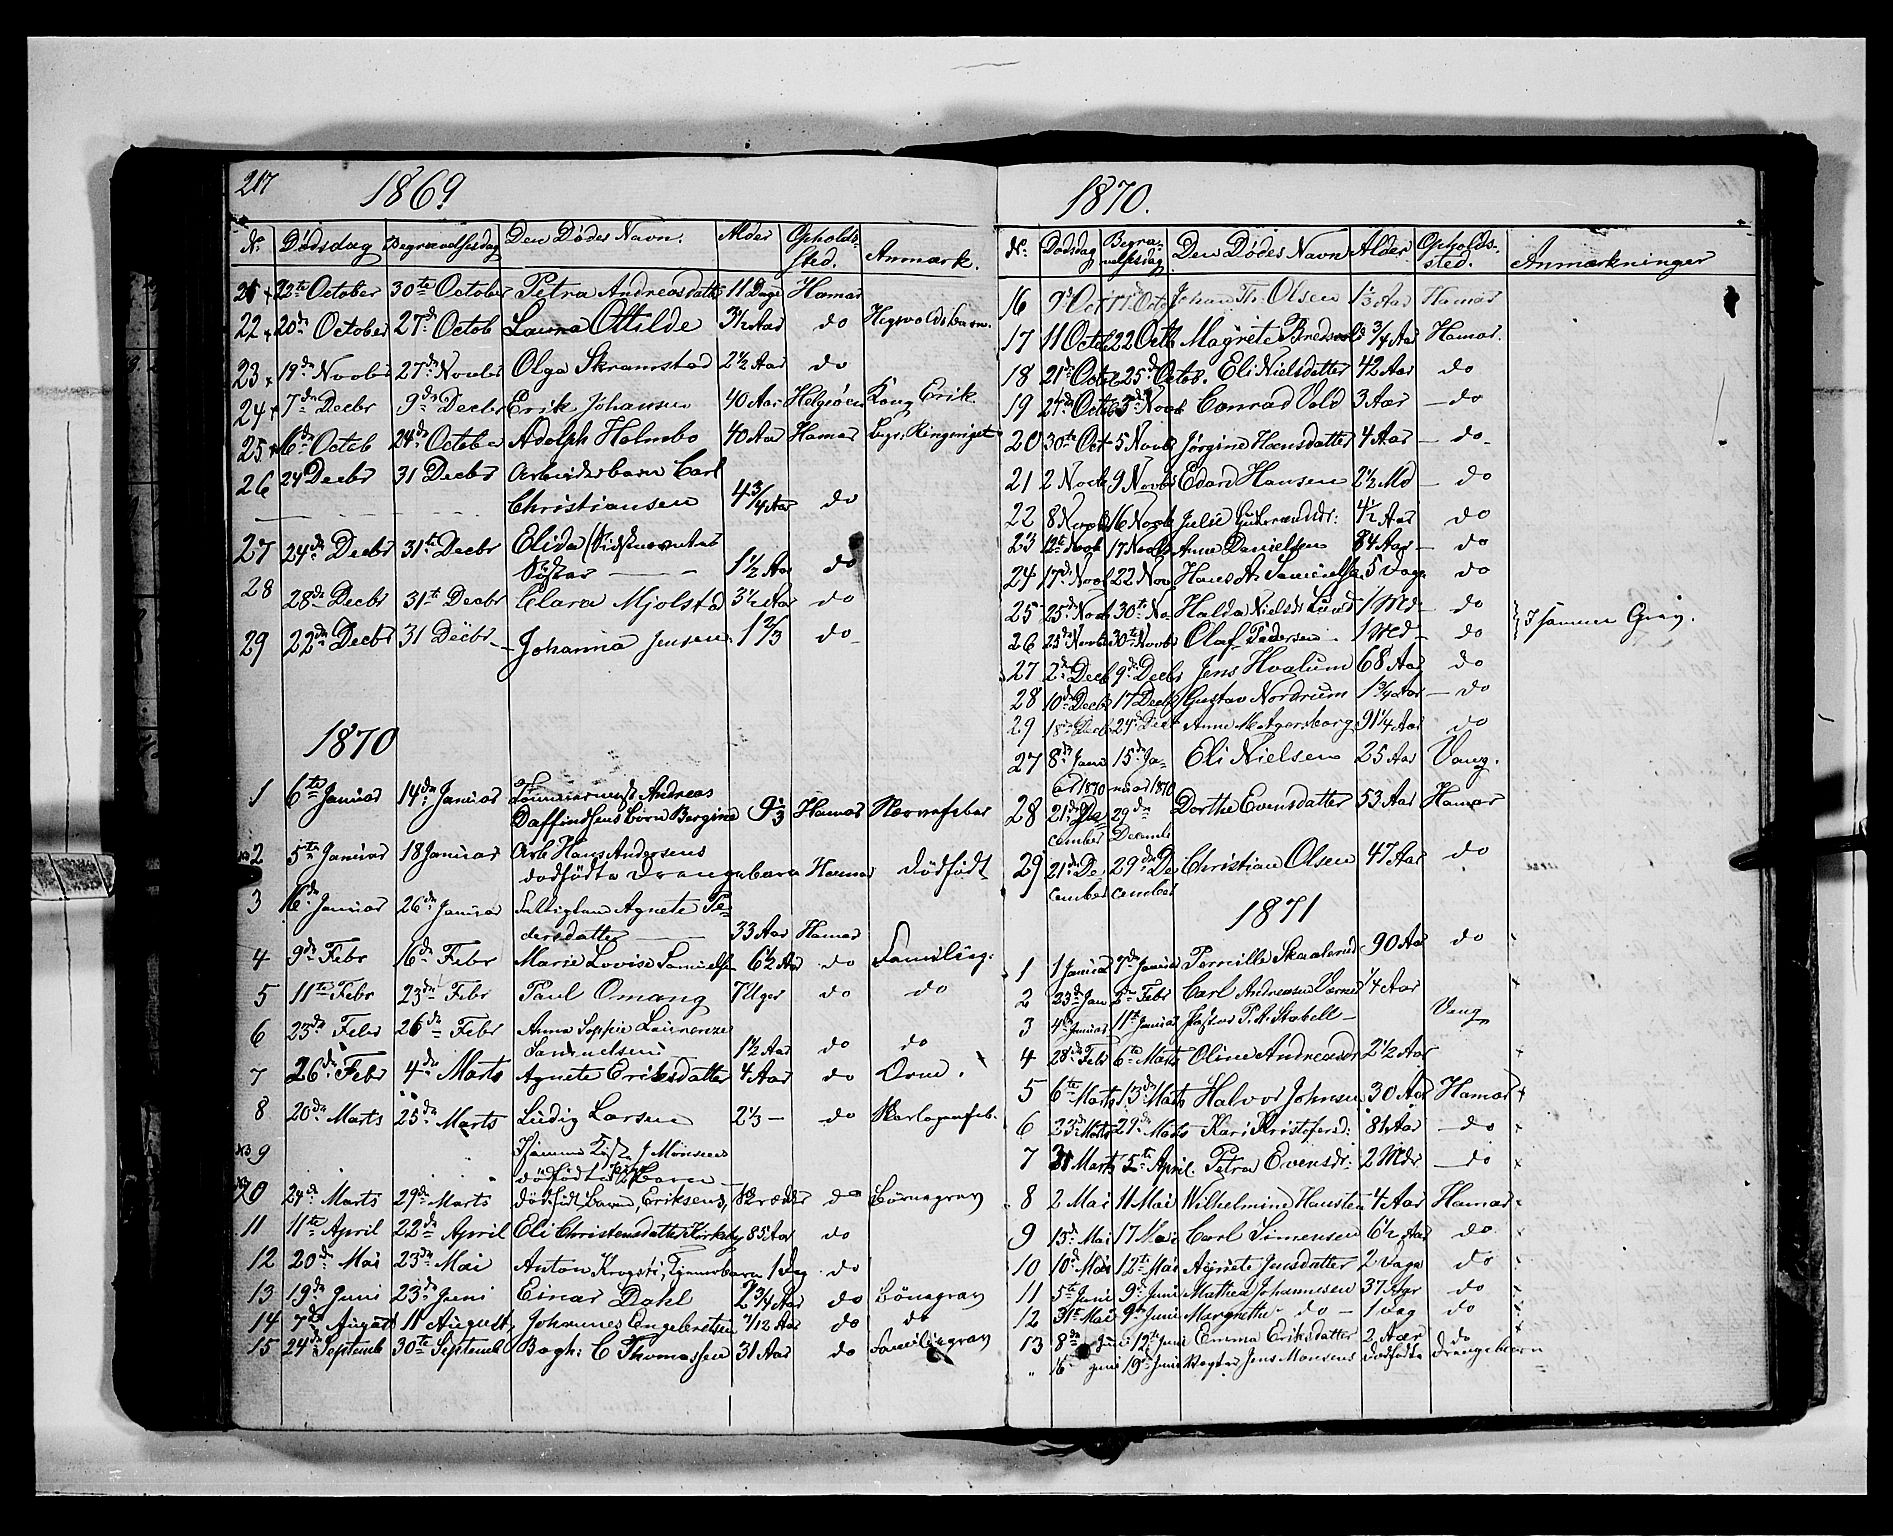 217
1869
No: Dødsdag Begravelsesdag Den Dødes Navn. Alder Opholds-sted. Anmærk.
21 x 22te October 30te October Petra Andreasdatter 11 Dage Hamar
22 x 20de October 27de Octob Laura Ottilde 3½ Aar do
23 x 19de Novbr 27de Novbr Olga Skramstad 2½ Aar do
24 x 7de Decbr 9de Decbr Erik Johansen 40 Aar Helgøen Kong Erik
25 x 6de Octob 24de October Adolph Holmbo 40 Aar Hamar
26 24 Decbr 31 Decbr Arbeiderbarn Carl
Christiansen 4¾ Aar do
27 24de Decbr 31te Decbr Elida (Sidstnævntes
Søster 1½ Aar do
28 28de Decbr 31te Decbr Clara Mjølstad 3½ Aar do
29 22de Decbr 31 Decbr Johanna Jensen 1 2/3 do
1870
1 6te Januar 14de Januar Tømmermand Andreas
Daffindsens Barn Bergine 9 1/3 Hamar Nervefeber
2 5te Januar 18 Januar Arb. Hans Andersens
dødfødte Drengebarn Hamar Dødfødt
3 16de Januar 26de Januar Fattiglem Agnete Pe-
dersdatter 33 Aar Hamar
4 9de Febr 16de Febr Marie Lovise Samuels 6½ Aar do Familieg.
5 11te Febr 23de Febr Paul Omang 7 Uger do do
6 23de Febr 26de Febr Anna Sophie Laurenze
Samuelsen 1½ Aar do do
7 26de Febr 4de Marts Agnete Eriksdatter 4 Aar do Orm.
8 20de Marts 25de Marts Ludvig Larsen 2 1/3 — do Skarlagensfeb.
9 Mønsens
dødfødte Barn
10 24de Marts 29de Marts dødfødt Barn, Eriksens, do Børnegrav
11 11te April 22de April Eli Christensdatter Kirkeby 85 Aar do
12 20de Mai 23de Mai Anton Krogsti, 1 dag do
13 19de Juni 23de Juni Einar Dahl 2¾ Aar do Børnegrav
14 7de August 11 August Johannes Engebretsen 7/12 Aar do do
15 24de Septemb 30te Septemb Bogh: C Thomassen 31 Aar do Familiegrav
1870.
No: Dødsdag Begra-velsesdag Den Dødes Navn Alder Opholds-sted. Anmærkninger
16 9de Oct 11 Octo Johan Th. Olsen 1½ Aar Hamar
17 11 Octob 22 Octb Magrete Bredvold ¾ Aar Hamar.
18 21de Octob 25de Octob. Eli Nielsdatter 42 Aar do
19 27de Octob 3de Novb Conrad Vold 3 Aar — do
20 30te Oct 5 Novb Jørgine Hansdatter 4 Aar — do
21 2 Novb 9 Novb Edard Hansen 2½ Md — do
22 8 Novb 16 Novb Julie Gulbrandsdr: 4½ Aar do
23 12te Novb 17 Novb Anne Danielsen 84 Aar — do
24 17de Novb 22 Nov Hans A. Samuelse 5 Dage do
25 25de Novb 30te No Halda Nielsdr Lund 1 Md — do
26 25de Novb 30te Novb Olaf Pedersen 1 Md — do } I samme Grav.
27 2de Decb 9de Decbr Jens Hvalum 68 Aar do
28 10de Decb 17 Decb Gustav Nordrum 1¾ Aar — do
29 18de Decb 24de Decb Anne M. Agersborg 91¼ Aar do
27 8de Janu 15de Ja- Eli Nielsen 25 Aar Vang.
ar 1870 nuar 1870
28 21de De- 29de Dorthe Evensdatter 53 Aar Hamar
cember Decemb
29 21de De 29de De Christian Olsen 47 Aar do
cember cember
1871
1 1 Januar 7de Januar Pernille Skaalerud 90 Aar do
2 23de Jan 5te Febr Carl Andreasen ¼ Aar
3 4de Januar 11te Januar Pastor P. A. Stabell — Vang
4 28de Febr 6te Marts Oline Andreasdr 2½ Aar x
5 6te Marts 13de Marts Halvor Johnsen 30 Aar Hamar x
6 23de Marts 29de Marts Kari Kristofersd: 81 Aar — do x
7 31 Marts 5te April. Petra Evensdr: 2 Mdr — do x
8 2 Mai 11 Mai Wilhelmine Hansten 4 Aar Hamar
9 13de Mai 17 Mai Carl Simensen 6½ Aar do
10 10de Mai 12te Mai Agnete Jensdatter 2 Dage do
11 5te Juni 9de Juni Mathea Johannesen 37 Aar do
12 31te Mai 9de Juni Margrethe — do — 1 Dag do
13 8de Juni 12te Juni Emma Eriksdatter 2 Aar do
" 16 Juni 19de Juni Jens Monsens dødfødte Drengebarn